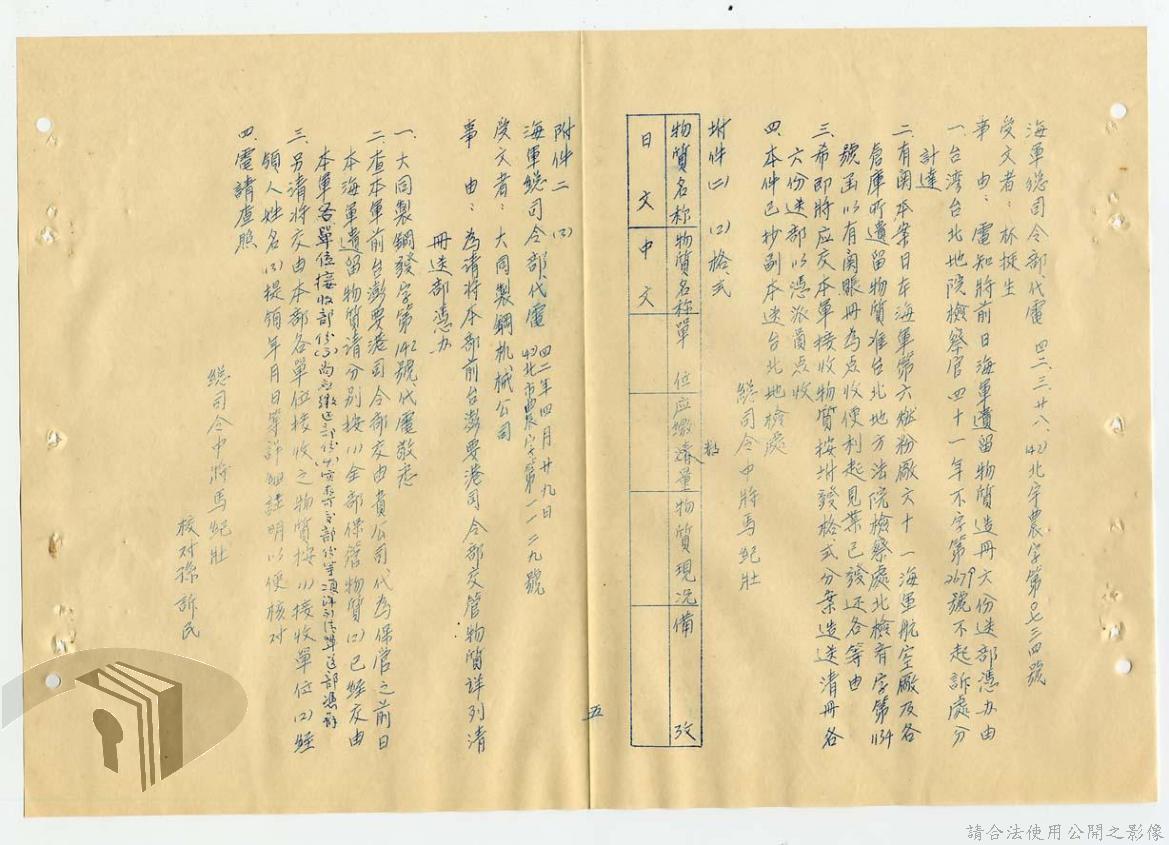 海軍總司令部代電 四二、三、廿八、(42)北宇農字第〇七三四號
受文者：林挺生
事 由：電知將前日海軍遺留物質造冊六份送部憑办由
一、台湾台北地院檢察官四十一年不字第2679號不起訴處分
計達
二、有関本案日本海軍第六燃料廠六十一海軍航空廠及各
倉庫所遺留物質准台北地方法院檢察處北檢育字第1134
號函以有関賬冊為点收便利起見業已發还各等由
三、希即將应交本軍接收物質按坿發格式分案造送清冊各
六份送部以憑派員点收
四、本件已抄副本送台北地檢處
總司令中將馬紀壯
坿件(二) (2)格式
物質名称 物質名称 單位 应繳清量 物質現况 備攷
日文 中文
五
附件二 (3)
海軍總司令部代電 四二年四月廿九日
(42)北市農字第一一二九號
受文者：大同製鋼机械公司
事 由：為請將本部前台澎要港司令部交管物質詳列清
冊送部憑办
一、大同製鋼發字第142號代電敬悉
二、查本軍前台澎要港司令部交由貴公司代為保管之前日
本海軍遺留物質請分別按(1)全部保舊物質(2)已經交由
本軍各單位接收部份(3)尚
三、另請將交由本部各單位接收之物質按(1)接收單位(2)經
領人姓名(3)提領年月日等詳細註明以便核对
四、電請查照
總司令中將馬紀壯
校对孫訴民
請合法使用公開之影像